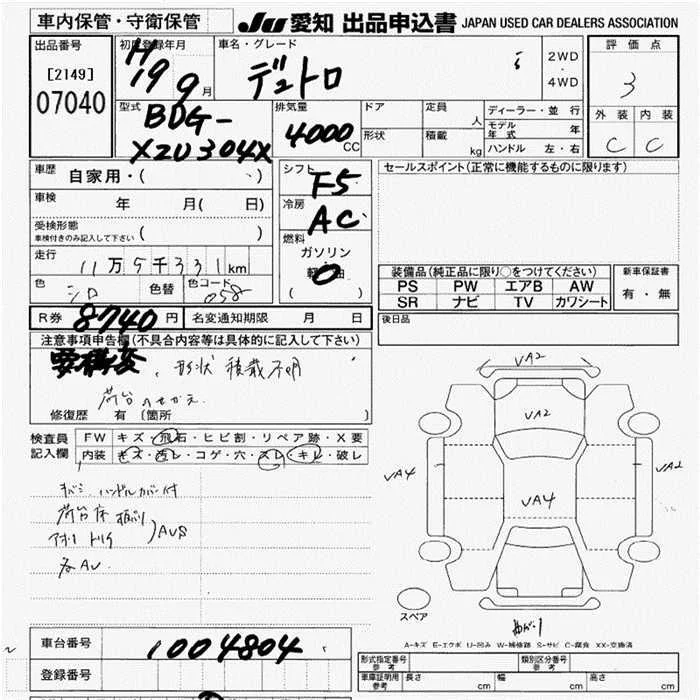 車内保管・守衛保管 JU 愛知 出品申込書 JAPAN USED CAR DEALERS ASSOCIATION
出品番号 [2149] 07040
初度登録年月 H 19 9月
車名・グレード デュトロ
2WD・4WD
評価点 3
外装 内装 C C
型式 BDG-
XZU304X
排気量 4000 CC
ドア 定員 人
形状 積載 kg
ディーラー・並行
モデル年式 年
ハンドル 左・右
車歴 自家用・( )
車検 年 月( 日)
受検形態 車検付きのみ記入して下さい ( )
走行 11万5千331km
色 シロ 色替 色コード 058
シフト F5
冷房 AC
燃料 ガソリン
軽油
( )
セールスポイント(正常に機能するものに限ります)
装備品(純正品に限り○をつけてください)
PS PW エアB AW
SR ナビ TV カワシート
新車保証書
有・無
R券 8740円 名変通知期限 月 日
後日品
注意事項申告欄(不具合内容等は具体的に記入して下さい)
要構変、形状 積載不明
荷台のせかえ
修復歴 有 〔箇所 〕
検査員記入欄
FW キズ・飛石・ヒビ割・リペア跡・X要
内装 キズ・汚レ・コゲ・穴・スレ・キレ・破レ
ハンドルカバー付
荷台床
AUS
各AU
VA2
VA2
VA4
VA4
VA2
スペア
A-キズ E-エクボ U-凹み W-補修跡 S-サビ C-腐食 XX-交換済
車台番号 1004804
登録番号
形式指定番号 参考 類別区分番号 参考
車庫証明用 参考 長さ cm 幅 cm 高さ cm